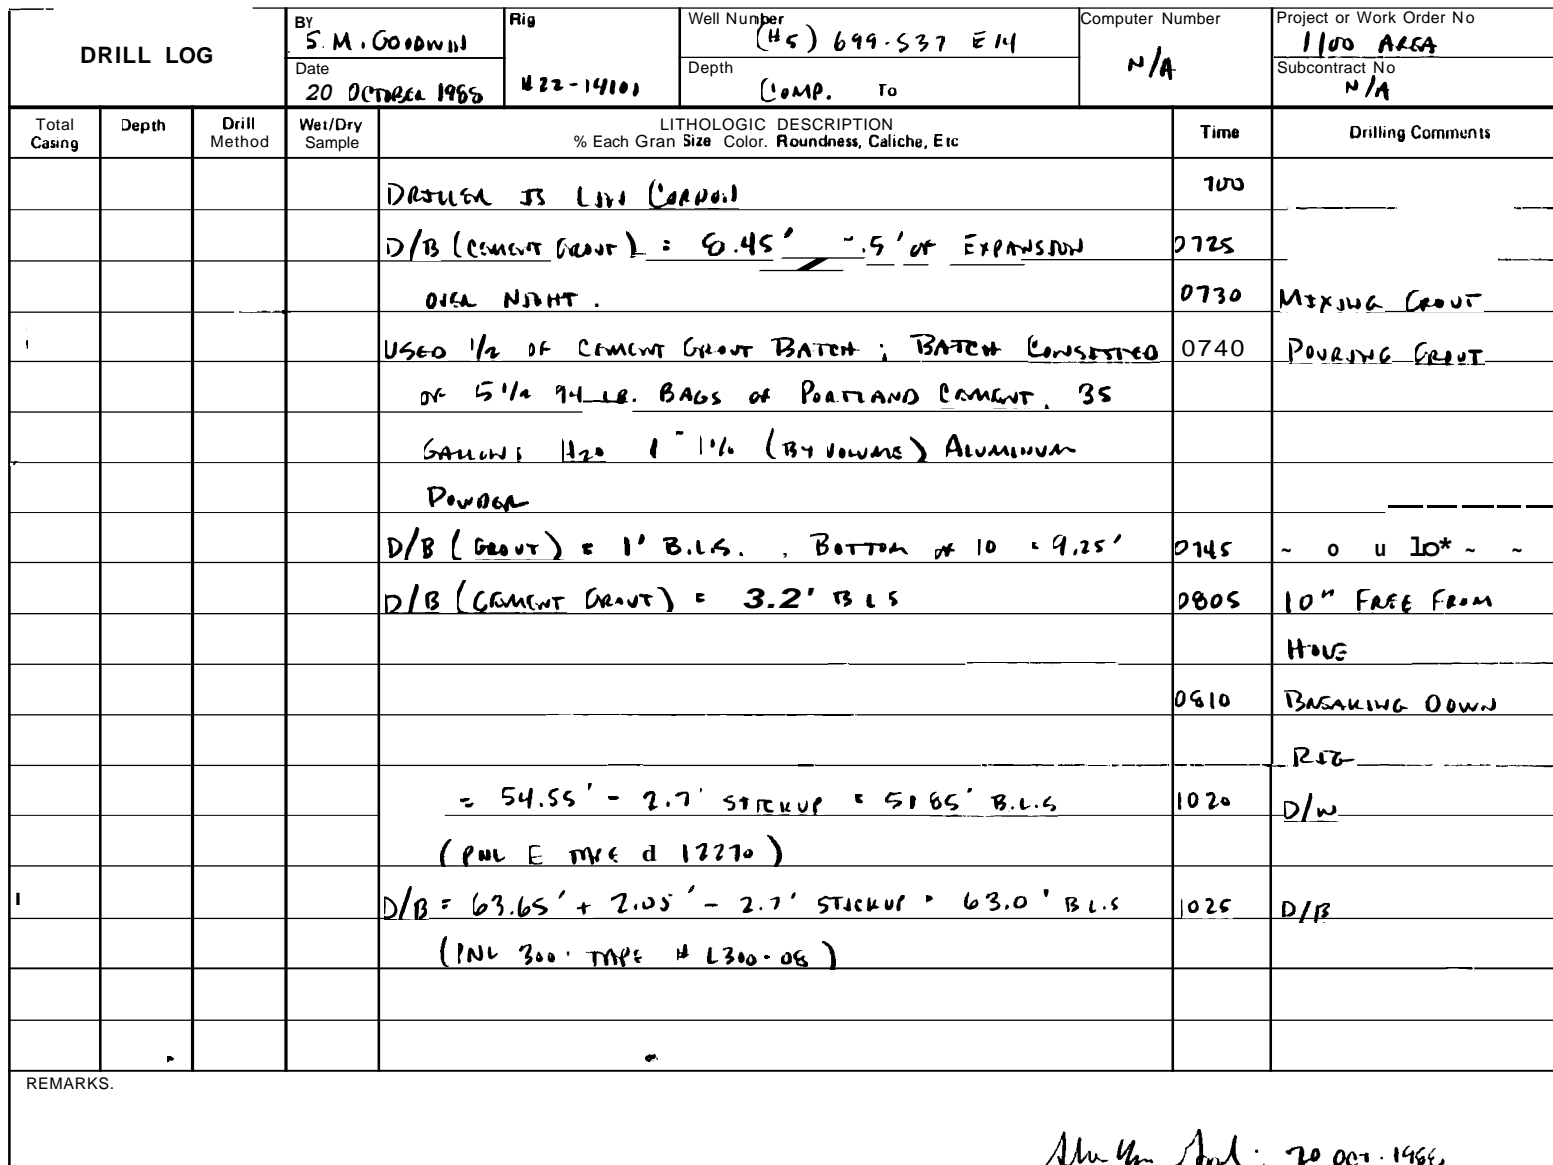 DRILL LOG
BY
S. M. GOODWIN
Date
20 OCTOBER 1988
Rig
# 22-14101
Well Number
(H5) 699-S37 E14
Depth
COMP. To
Computer Number
N/A
Project or Work Order No
1100 AREA
Subcontract No
N/A
Total Casing
Depth
Drill Method
Wet/Dry Sample
LITHOLOGIC DESCRIPTION
% Each Gran Size Color. Roundness, Caliche, Etc
Time
Drilling Comments
DRILLER IS 700
D/B (CEMENT GROUT) = 8.45' ~.5' OF EXPANSION 0725
OVER NIGHT. 0730 MIXING GROUT
USED 1/2 OF CEMENT GROUT BATCH; BATCH CONSISTED 0740 POURING GROUT
OF 5 1/2 94 LB. BAGS OF PORTLAND CEMENT, 35
GALLONS H2O ~ 1% (BY VOLUME) ALUMINUM
POWDER
D/B (GROUT) = 1' B.L.S. , BOTTOM OF 10 = 9.25' 0745 ~ o u lo* ~ ~
D/B (CEMENT GROUT) = 3.2' B L S 0805 10" FREE FROM
HOLE
0810 BREAKING DOWN
RIG
= 54.55' - 2.7' STICKUP = 51 85' B.L.S 1020 D/W
(PNL E TAPE d 12270)
D/B = 63.65' + 2.05' - 2.7' STICKUP = 63.0' B L.S 1025 D/B
(PNL 300' TAPE # L300-08)
REMARKS.
20 OCT. 1988